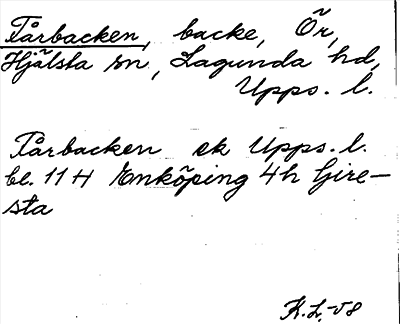 Tårbacken, backe, Ör,
Hjälsta sn, Lagunda hd,
Upps. l.
Tårbacken ek Upps. l.
bl. 11 H Enköping 4h Gire-
sta
K.L.-58